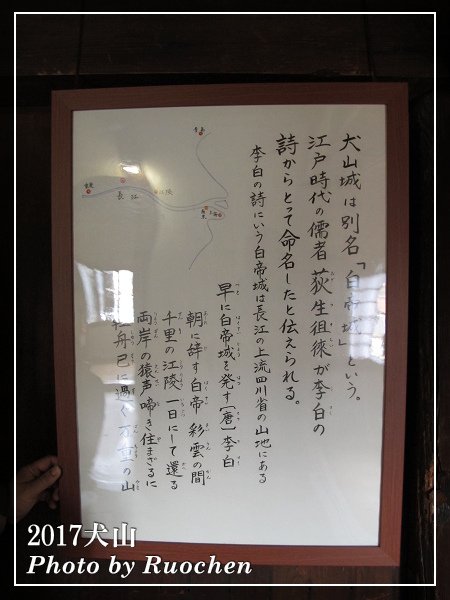 犬山城は別名「白帝城」という。
江戸時代の儒者 荻生徂徠が李白の
詩からとって命名したと伝えられる。
李白の詩にいう白帝城は長江の上流四川省の山地にある
早に白帝城を発す[唐]李白
朝に辞す白帝 彩雲の間
千里の江陵 一日にして還る
両岸の猿声啼き住まざるに
軽舟已に過ぐ 万重の山
重慶
長江
江陵
南京
上海
2017犬山
Photo by Ruochen